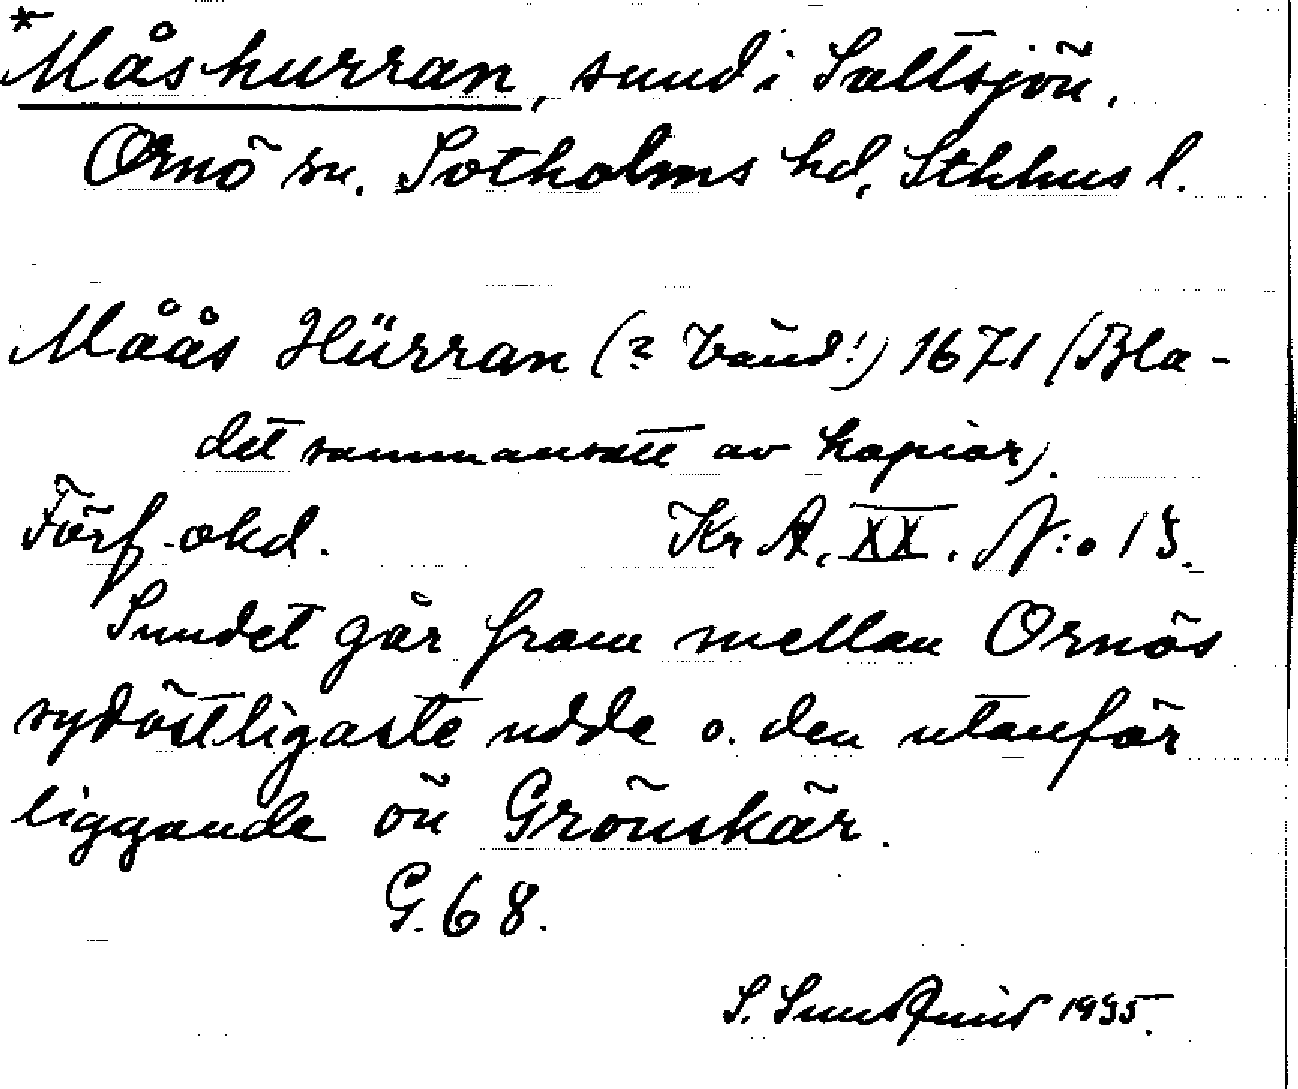 *Måshurran, sund i Saltsjön,
Ornö sn. Sotholms hd, Sthlms l.
Måås Hürran (? 1671 (Bla-
det sammansatt av kopior).
Förf. okd. Kr A, XX. N:o 13.
Sundet går fram mellan Ornös
sydöstligaste udde o. den utanför
liggande ön Grönskär.
G. 68.
S. Sundquist 1935.